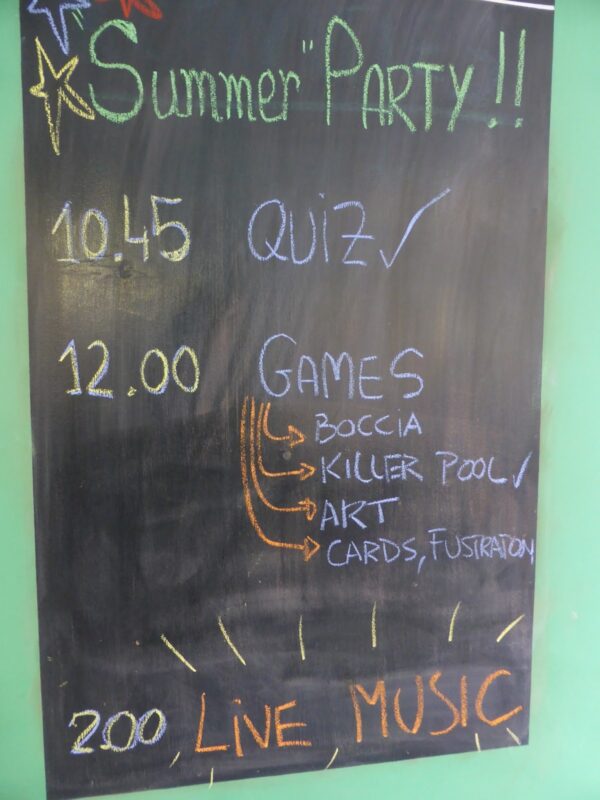 "Summer" PARTY!!
10.45 QUIZ ✓
12.00 GAMES
BOCCIA
KILLER POOL ✓
ART
CARDS, FUSTRATON
2.00 LIVE MUSIC